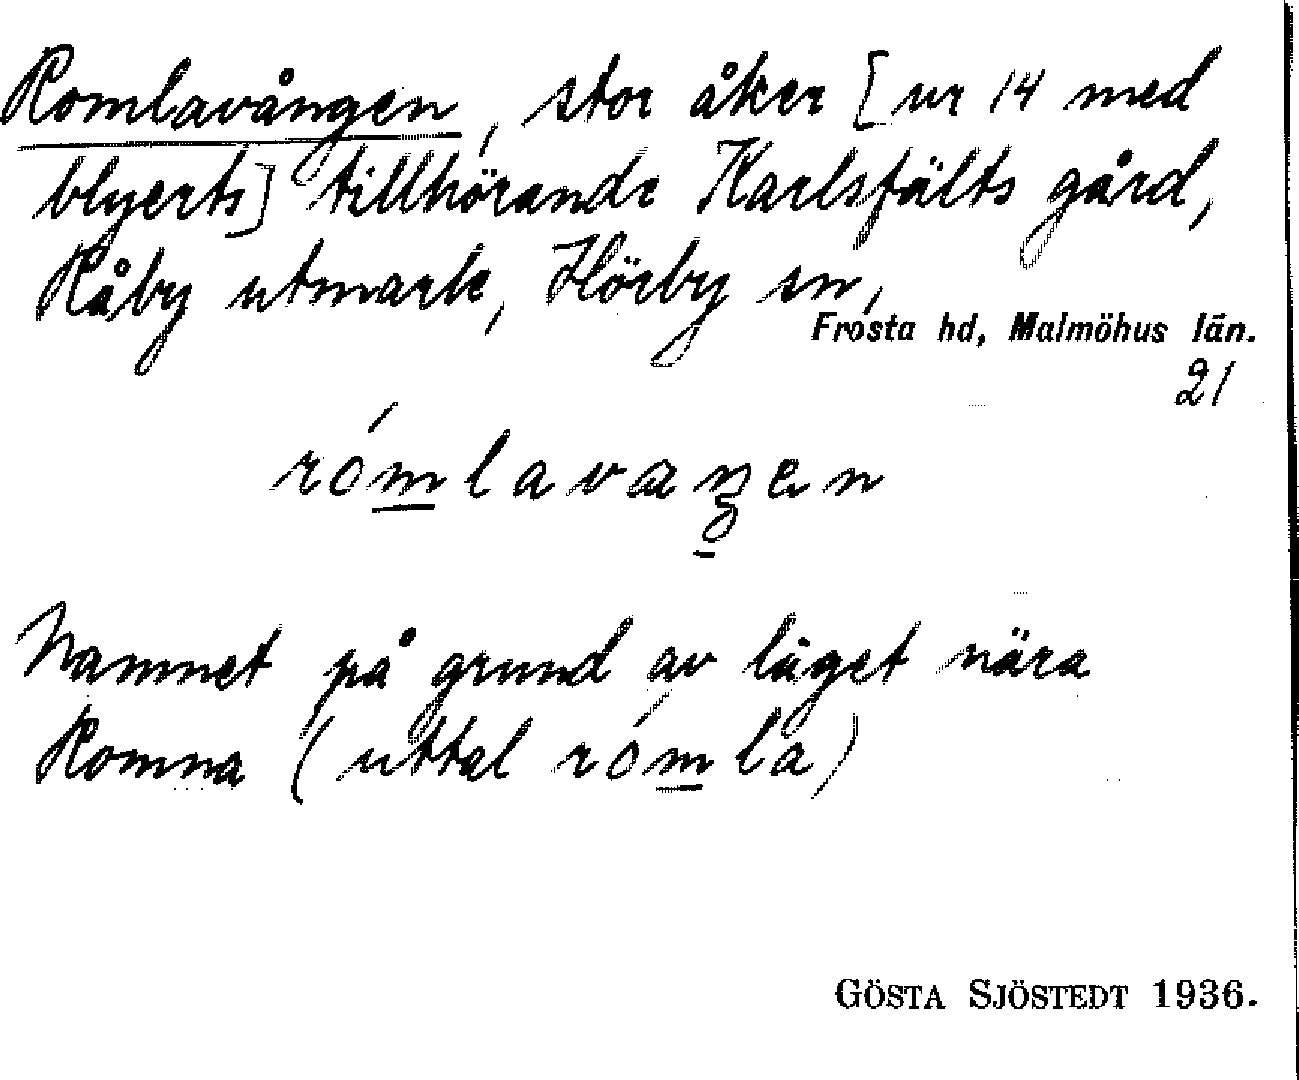 Romlavången, stor åker [ur 14 med
blyerts] tillhörande Karlsfälts gård,
Råby utmark, Hörby sn,
Frosta hd, Malmöhus län.
21
rómlavaŋen
Namnet på grund av läget nära
Romna (uttal rómla)
GÖSTA SJÖSTEDT 1936.